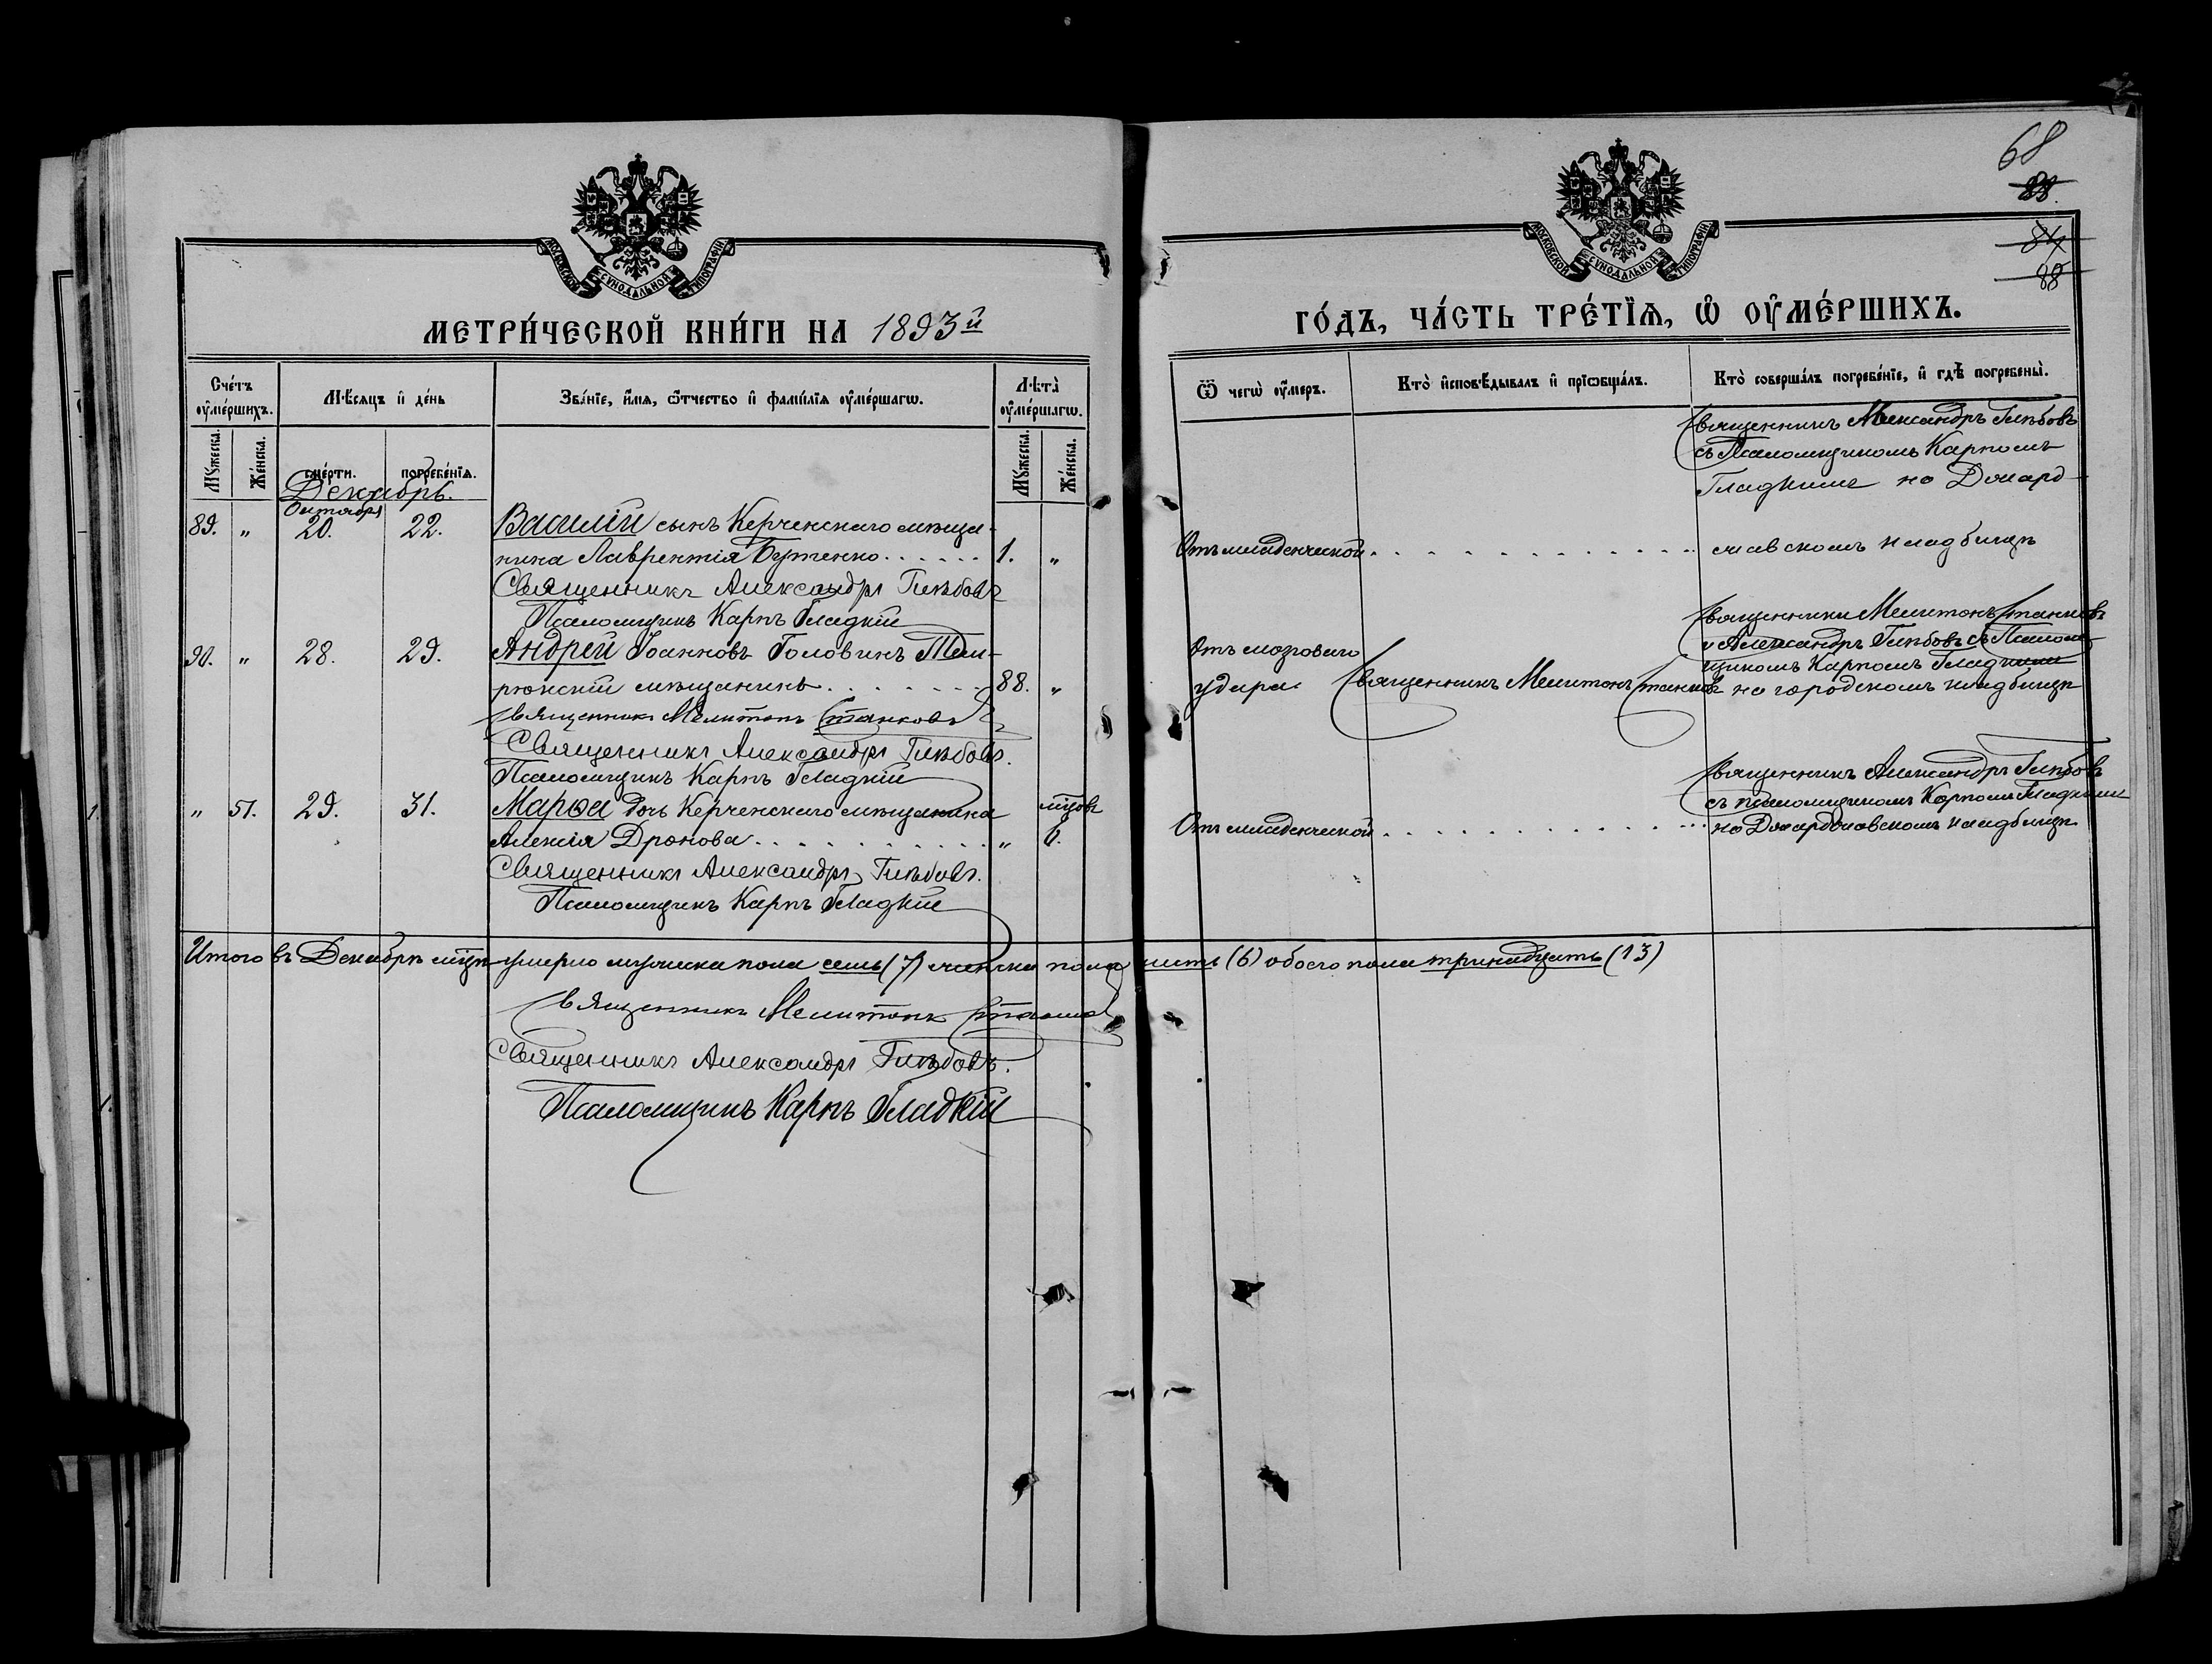 68
88.
84
88
МОСКОВСКОЙ СѴНОДАЛЬНОЙ ТИПОГРАФІИ
МОСКОВСКОЙ СѴНОДАЛЬНОЙ ТИПОГРАФІИ
МЕТРИ́ЧЕСКОЙ КНИ́ГИ НА 1893й
ГО́ДЪ, ЧА́СТЬ ТРЕ́ТЇѦ, Ѡ҆ ОУ҆МЕ́РШИХЪ.
Сче́тъ оу҆ме́ршихъ.
Мꙋжеска.
Же́нска.
М҆ѣсѧцъ и҆ де́нь
сме́рти.
погребе́нїѧ.
Зва́нїе, и҆́мѧ, ѻ҆́тчество и҆ фами́лїѧ оу҆ме́ршагѡ.
Лѣ́та оу҆ме́ршагѡ.
Мꙋжеска.
Же́нска.
Ѿ чегѡ̀ оу҆́меръ.
Кто̀ и҆сповѣ́дывалъ и҆ прїѡбща́лъ.
Кто̀ соверша́лъ погребе́нїе, и҆ гдѣ̀ погребены̀.
Декабрь.
Октября
89. " 20. 22. Василій сынъ Керченскаго мѣща-
нина Лаврентія Бутенко . . . . . . 1. "
Священникъ Александръ Глѣбовъ
Псаломщикъ Карпъ Гладкій
Отъ младенческой . . . . . . . . . . . . .
Священникъ Александръ Глѣбовъ
съ Псаломщикомъ Карпомъ
Гладкимъ на
кладбищѣ
90. " 28. 29. Андрей Іоанновъ Головинъ Тем-
рюкскій мѣщанинъ . . . . . . . 88. "
Священникъ Мелитонъ Станковъ
Священникъ Александръ Глѣбовъ.
Псаломщикъ Карпъ Гладкій
Отъ мозгового
удара. Священникъ Мелитонъ Станковъ
Священники Мелитонъ Станковъ
и Александръ Глѣбовъ съ Псалом-
щикомъ Карпомъ Гладкимъ
на городскомъ кладбищѣ
" 51. 29. 31. Марѳа дочь Керченскаго мѣщанина мцовъ
Алексія Дронова . . . . . . . . . . . " 6.
Священникъ Александръ Глѣбовъ.
Псаломщикъ Карпъ Гладкій
Отъ младенческой . . . . . . . . . . . . .
Священникъ Александръ Глѣбовъ
съ псаломщикомъ Карпомъ Гладкимъ
на кладбищѣ
Итого въ Декабрѣ мцѣ умерло мужска пола семь (7) женска пола шесть (6) обоего пола тринадцать (13)
Священникъ Мелитонъ Станковъ
Священникъ Александръ Глѣбовъ.
Псаломщикъ Карпъ Гладкій